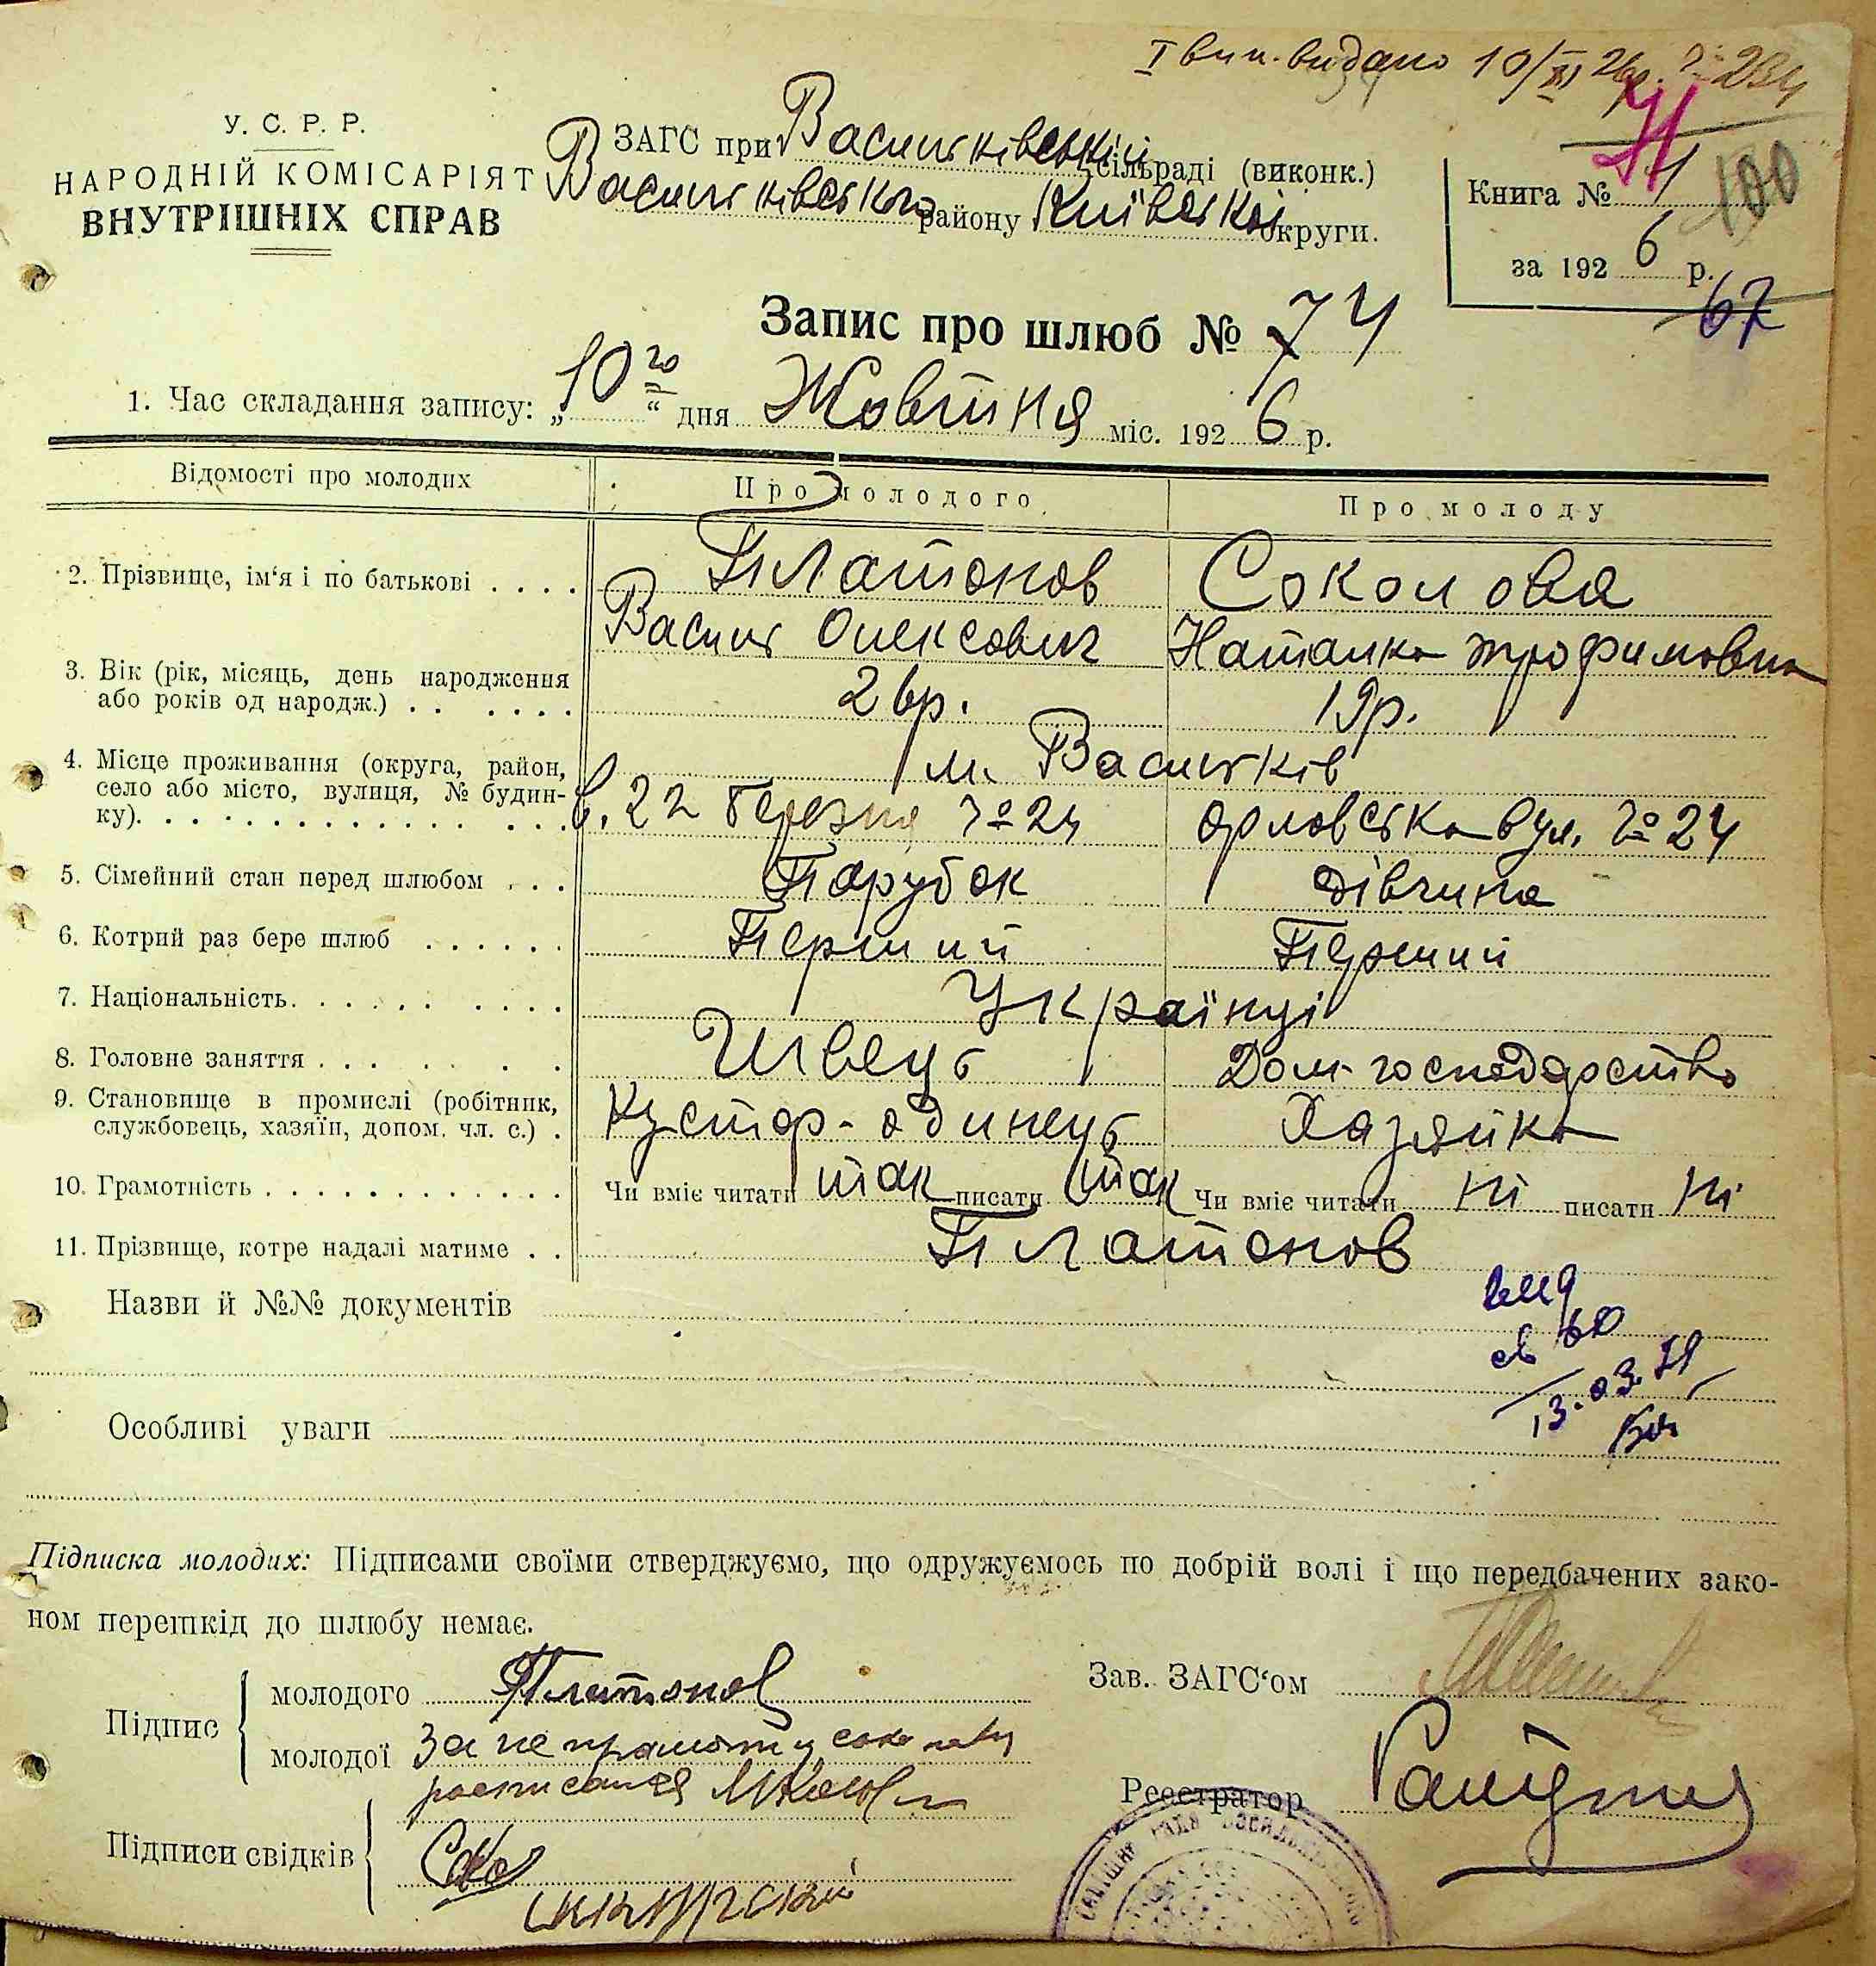 І вип. видано 10/XI 26р. № 234
У. С. Р. Р.
НАРОДНІЙ КОМІСАРІЯТ
ВНУТРІШНІХ СПРАВ
ЗАГС при Васильківській сільраді (виконк.)
Васильківського району Київської округи.
Книга № 1
100
за 192 6 р.
67
Запис про шлюб № 74
1. Час складання запису: „10го“ дня Жовтня міс. 192 6 р.
Відомості про молодих
Про молодого
Про молоду
2. Прізвище, ім‘я і по батькові . . . .
Платонов
Василь Олексович
Соколова
Наталка Трофимовна
3. Вік (рік, місяць, день народження
або років од народж.) . . . . . .
26р.
19р.
4. Місце проживання (округа, район,
село або місто, вулиця, № будин-
ку). . . . . . . . . . . . . . . .
м. Васильків
в. 22 Березня № 24
Орловська вул. № 24
5. Сімейний стан перед шлюбом . . .
Парубок
дівчина
6. Котрий раз бере шлюб . . . . . .
Перший
Перший
7. Національність. . . . . . . . . .
Українці
8. Головне заняття . . . . . . .
Швець
Дом-господарство
9. Становище в промислі (робітник,
службовець, хазяїн, допом. чл. с.) .
Кустар-одинець
Хазяйка
10. Грамотність . . . . . . . . . . . .
Чи вміє читати так писати так
Чи вміє читати ні писати ні
11. Прізвище, котре надалі матиме . .
Платонов
Назви й №№ документів
13.03.71
Особливі уваги
Підписка молодих: Підписами своїми стверджуємо, що одружуємось по добрій волі і що передбачених зако-
ном перешкід до шлюбу немає.
Підпис
молодого Платонов
молодої За неграмотну Соколову
росписался
Підписи свідків
Зав. ЗАГС‘ом
Реєстратор